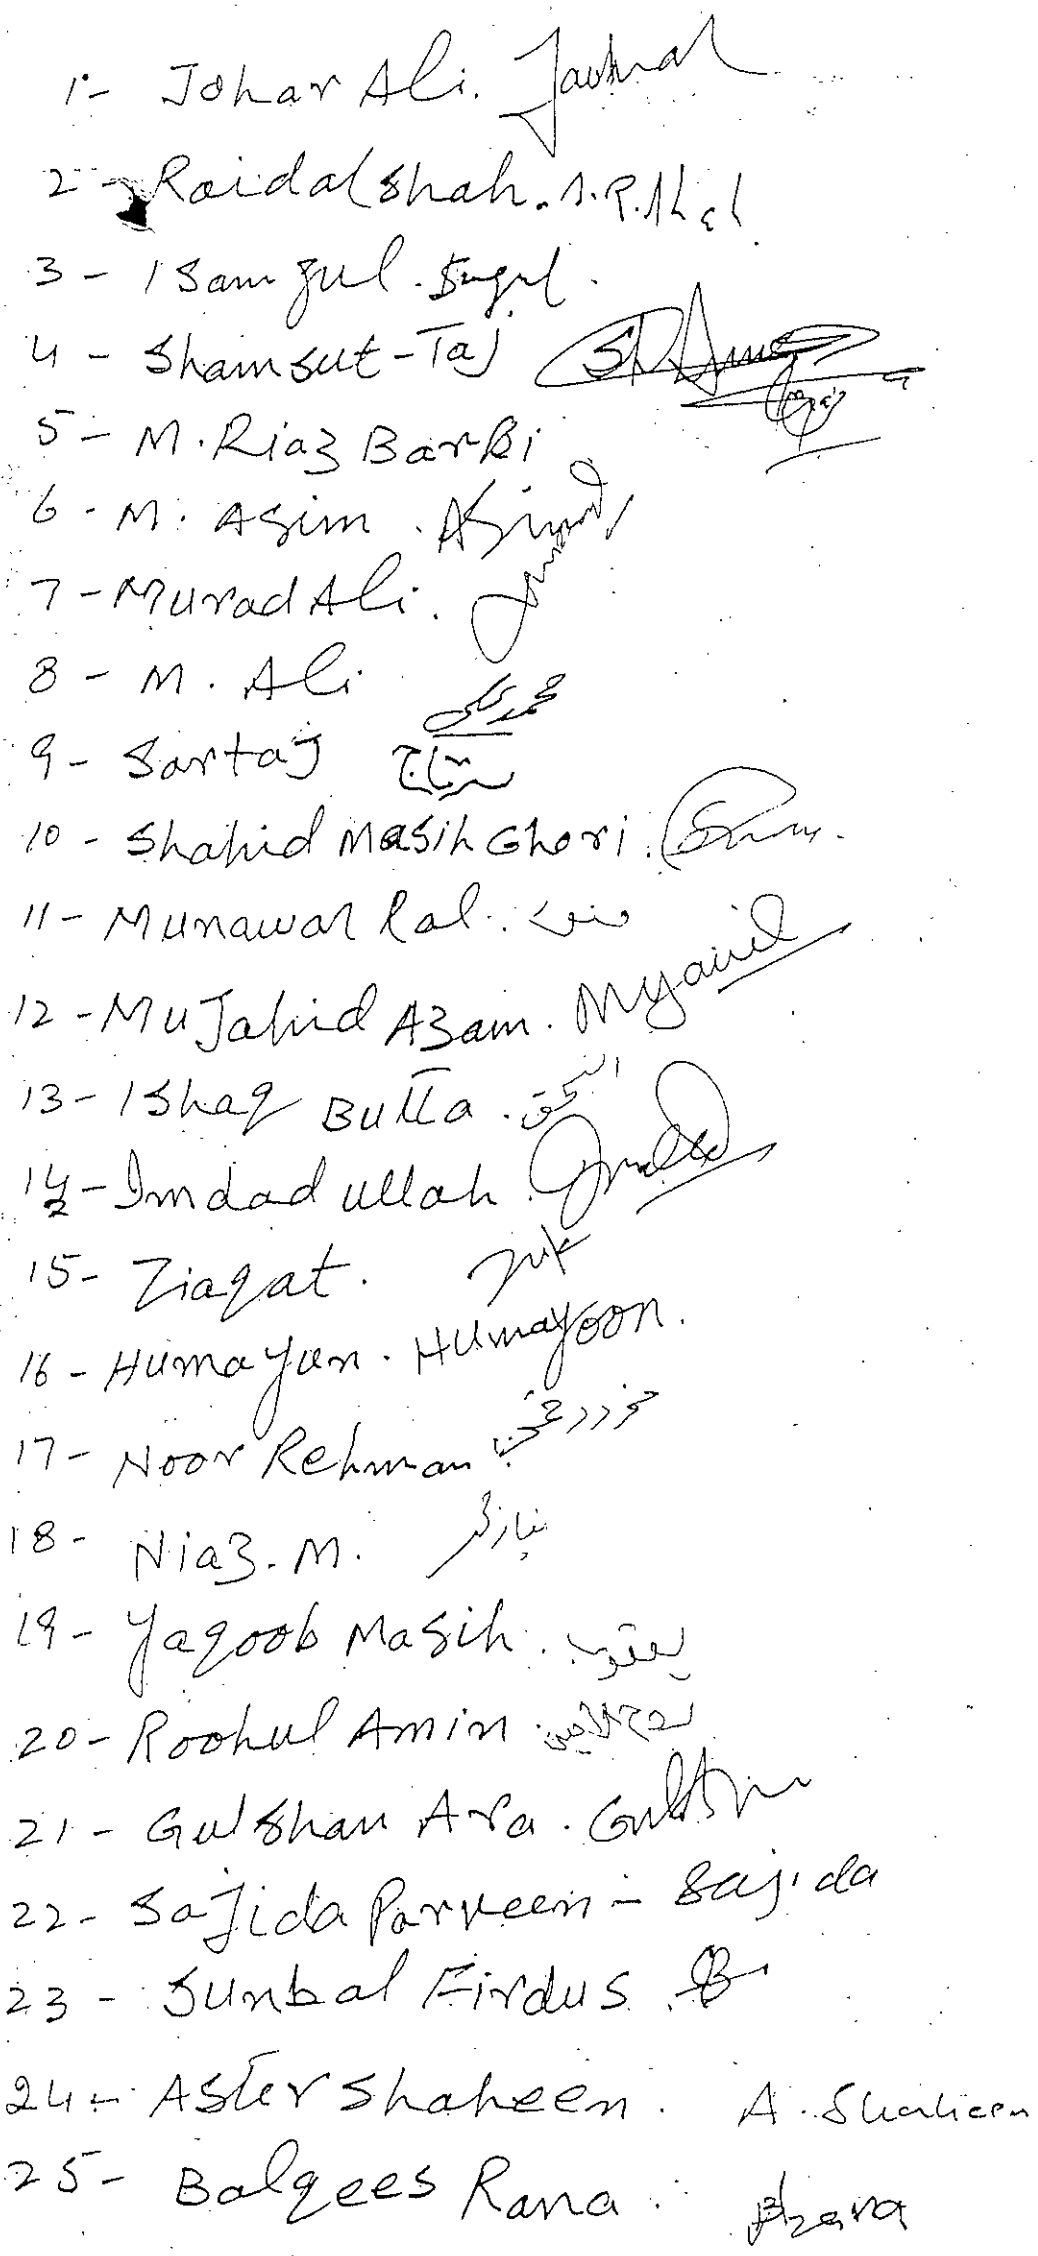 1- Johar Ali.
2- Raidal Shah. A.R.Shah
3- Isamgul.
4- Shamsut-Taj
5- M. Riaz Barki
6- M. Asim. Asim
7- Murad Ali.
8- M. Ali محمد علی
9- Sartaj سرتاج
10- Shahid Masih Ghori.
11- Munawar Lal.
12- Mujahid Azam.
13- Ishaq Butta. اسحق
14- Imdadullah.
15- Ziaqat.
16- Humayun. Humayoon.
17- Noor Rehman
18- Niaz. M.
19- Yaqoob Masih. یعقوب
20- Roohul Amin. روح الامین
21- Gulshan Ara.
22- Sajida Parveen - Sajida
23- Sunbal Firdus.
24- Aster Shaheen. A. Shaheen
25- Balqees Rana.